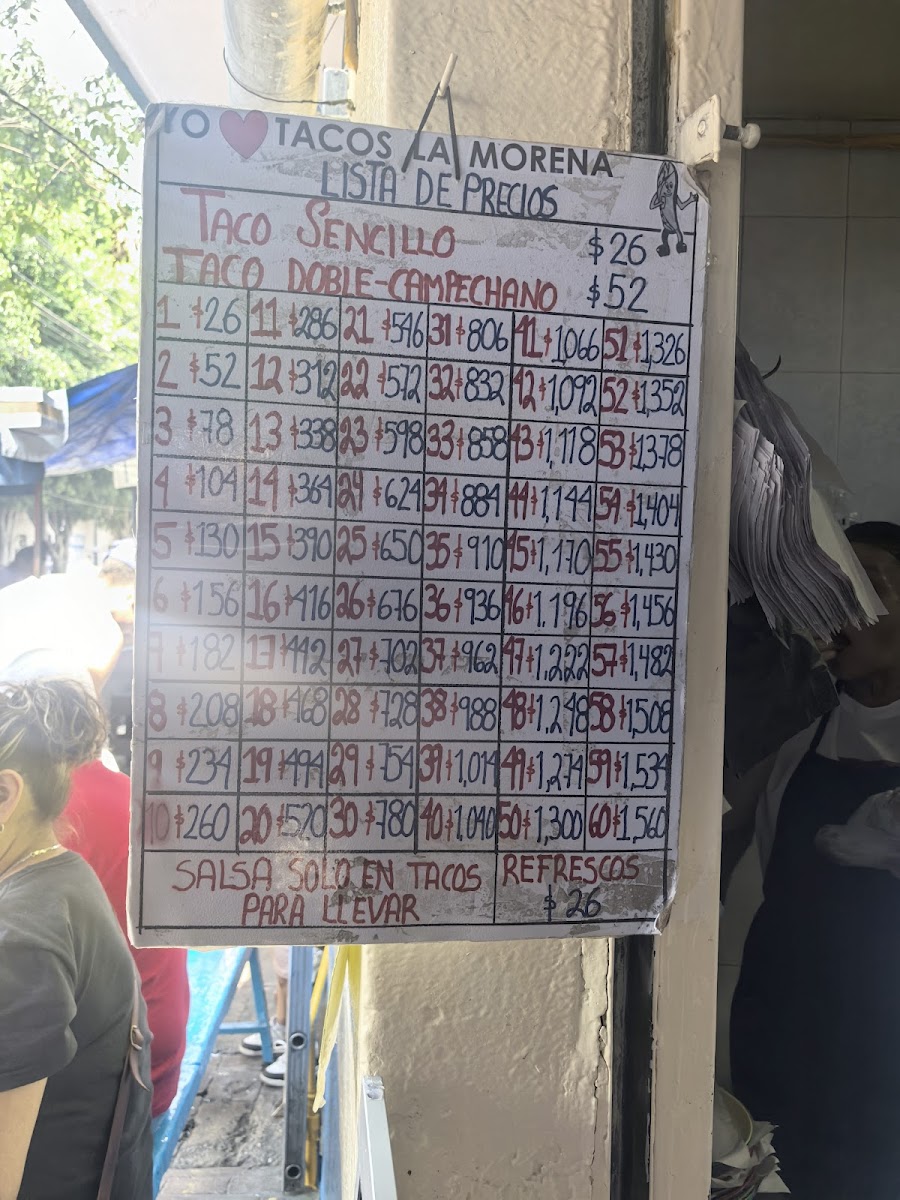 YO ❤ TACOS LA MORENA
LISTA DE PRECIOS
TACO SENCILLO $26
TACO DOBLE-CAMPECHANO $52
1 $26 11 $286 21 $546 31 $806 41 $1,066 51 $1,326
2 $52 12 $312 22 $572 32 $832 42 $1,092 52 $1,352
3 $78 13 $338 23 $598 33 $858 43 $1,118 53 $1,378
4 $104 14 $364 24 $624 34 $884 44 $1,144 54 $1,404
5 $130 15 $390 25 $650 35 $910 45 $1,170 55 $1,430
6 $156 16 $416 26 $676 36 $936 46 $1,196 56 $1,456
7 $182 17 $442 27 $702 37 $962 47 $1,222 57 $1,482
8 $208 18 $468 28 $728 38 $988 48 $1,248 58 $1,508
9 $234 19 $494 29 $754 39 $1,014 49 $1,274 59 $1,534
10 $260 20 $520 30 $780 40 $1,040 50 $1,300 60 $1,560
SALSA SOLO EN TACOS
PARA LLEVAR
REFRESCOS
$26